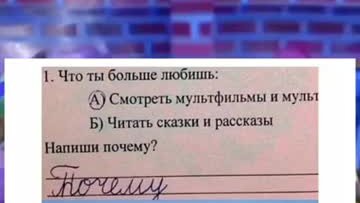 1. Что ты больше любишь:
А) Смотреть мультфильмы и мульт
Б) Читать сказки и рассказы
Напиши почему?
Почему